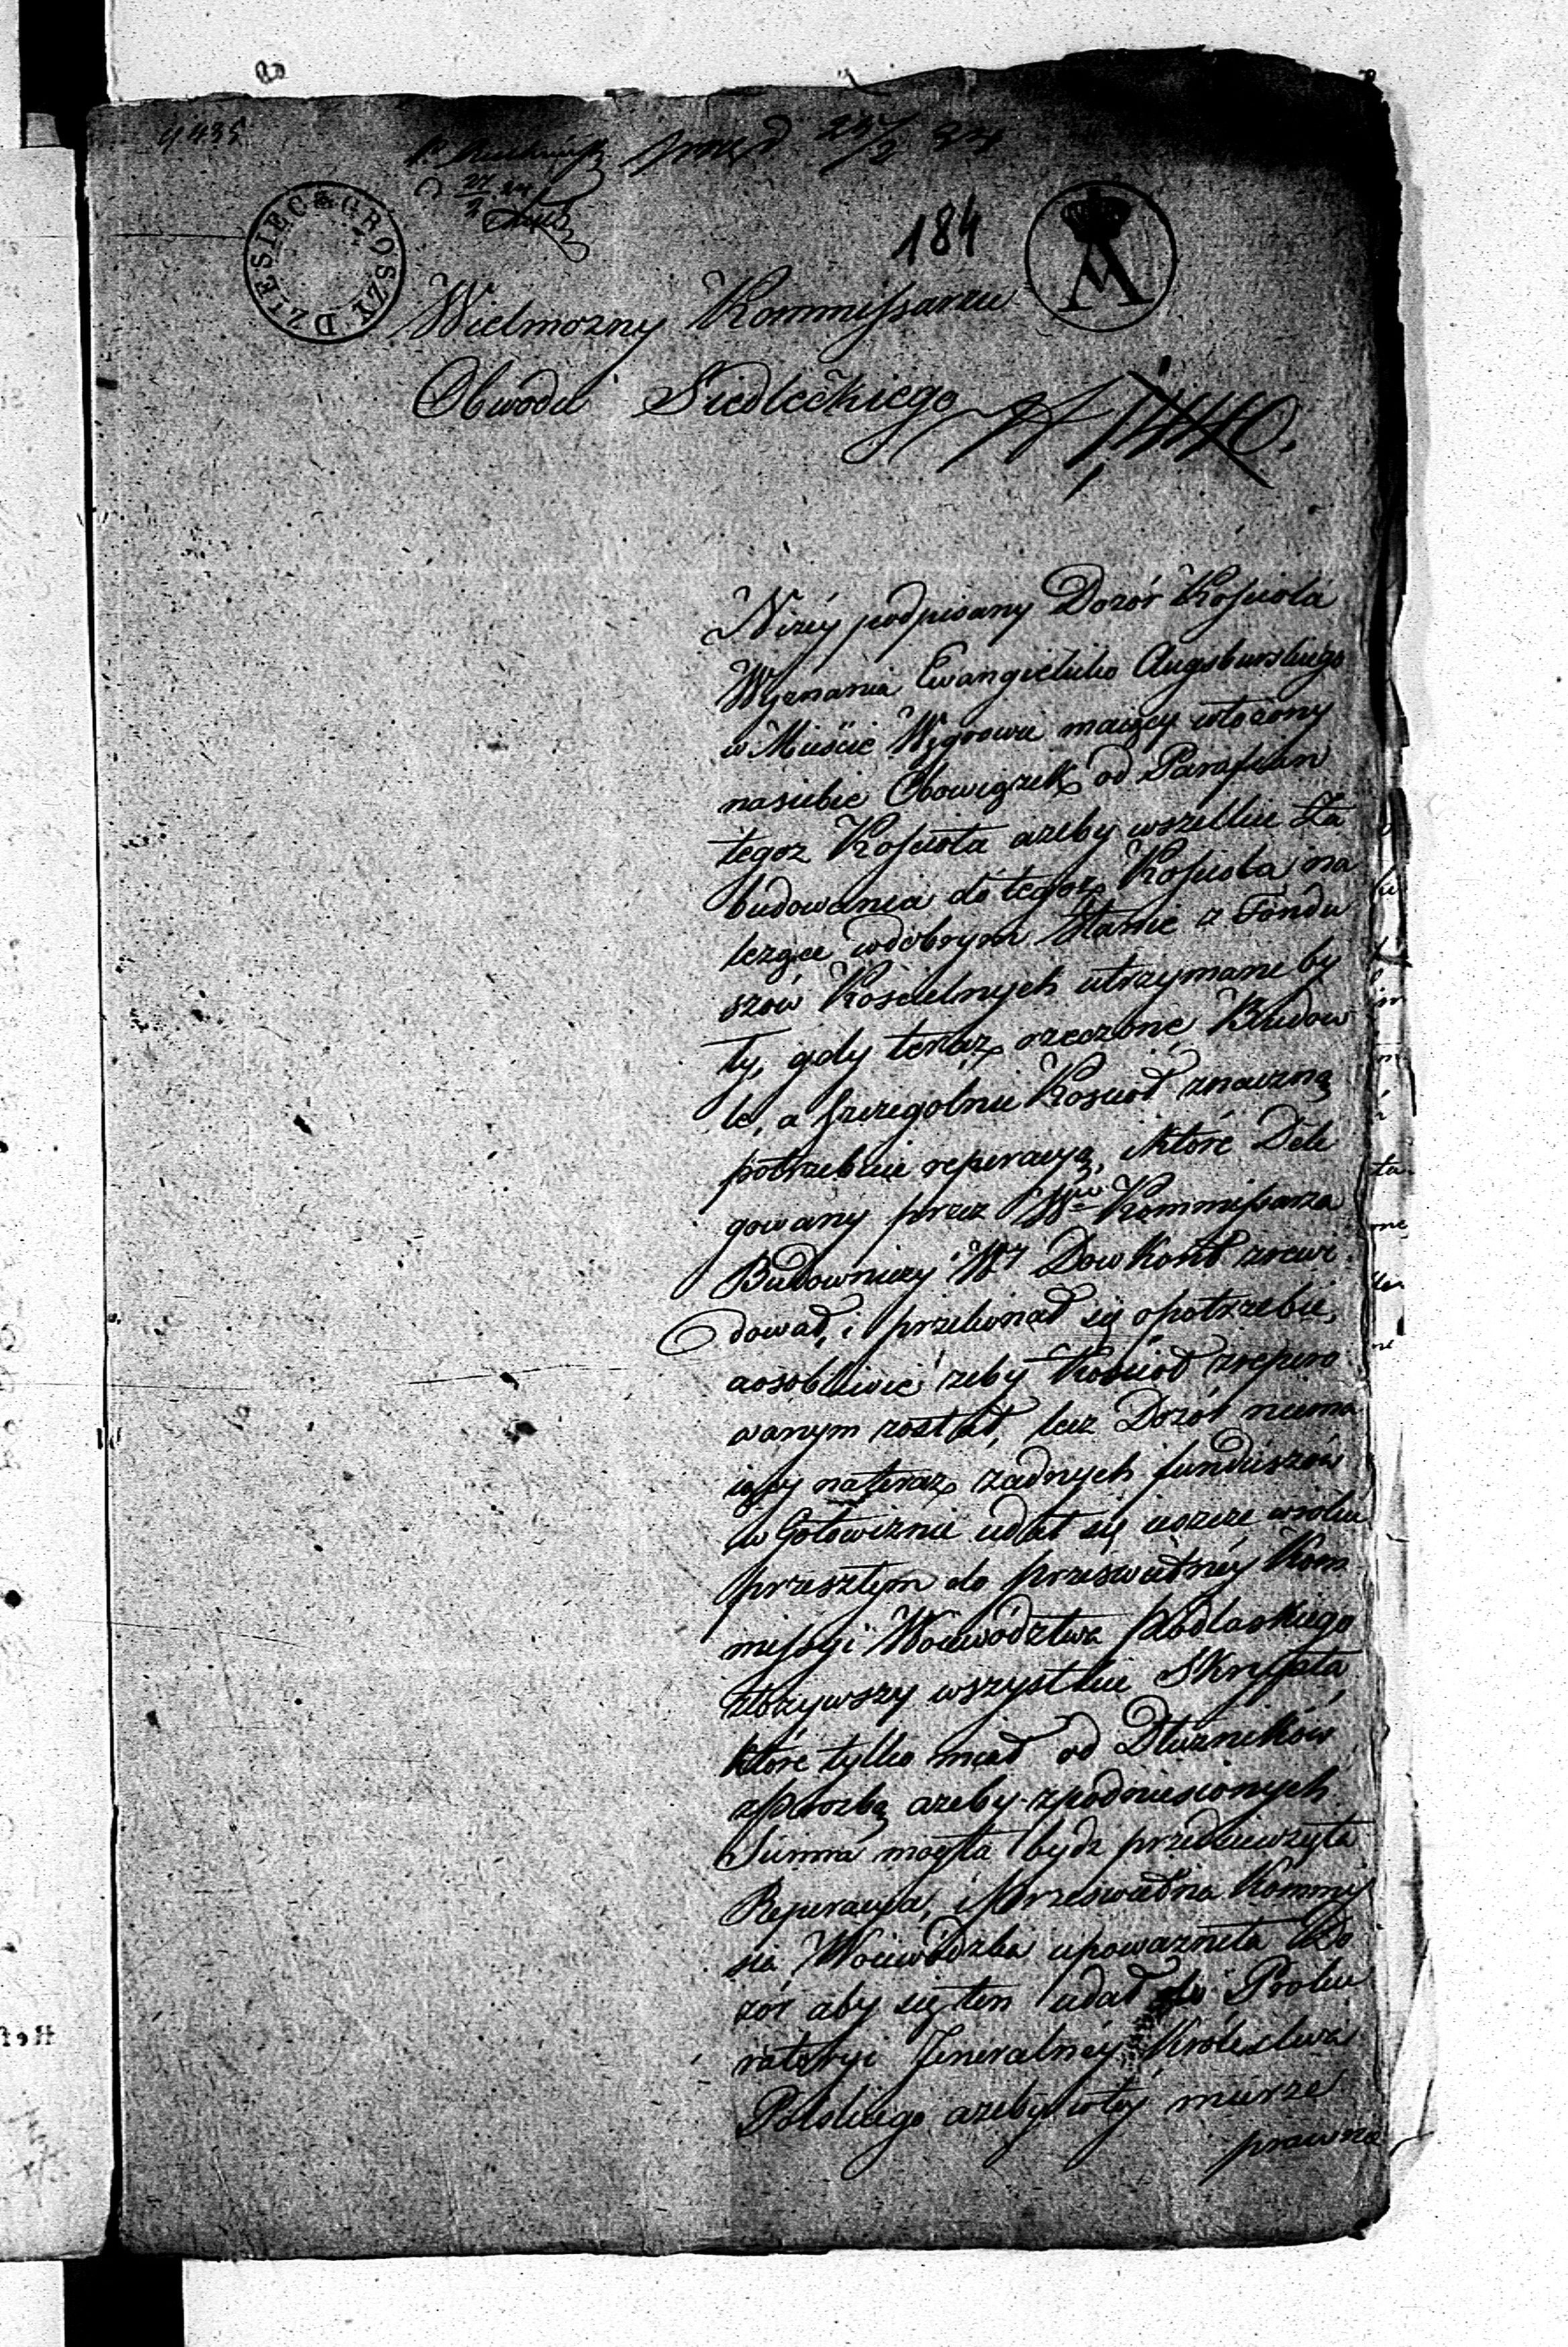 4435
DZIESIĘC GROSZY
184
Wielmozny Kommissarzu
Obwodu Siedleckiego
1440.
Niźéy podpisany Dozór Kościoła
Wyznania Ewangielicko Augsburskiego
w Mieście Węgrowie maiący włożony
nasiebie Obowiązek od Parafian
tegoz Kościoła azeby wszelkie Za
budowania do tegoz Kościoła na
lezące wdobrym Stanie z Fundu
szów Kościelnych utrzymane by
ły, gdy teraz rzeczone Budow
le, a szczegolnie Kosciół znaczną
potrzebuie reperacyą, które Dele
gowany przez Wgo Kommissarza
Budowniczy Wy Dowkont zrewi
dował, i przekonał się opotrzebie,
aosobliwie zeby Kosciół zrepero
wanym został, lecz Dozór niema
iący nateraz zadnych funduszów
w Gotowiznie udał się ieszcze wroku
przeszłym do prześwietnéy Kom
missyi Woiewództwa Podlaskiego
złożywszy wszystkie Skrypta
które tylko miał od Dłuzników
zproźbą azeby zpodniesionych
Summ mogła bydz przedsiewzięta
Reperacya, i prześwietna Kommis
sia Woiewódzka upowazniła Do
zór aby się ten udał do Proku
ratoryi Jeneralnéy Królestwa
Polskiego azeby wtéy mierze
prawne